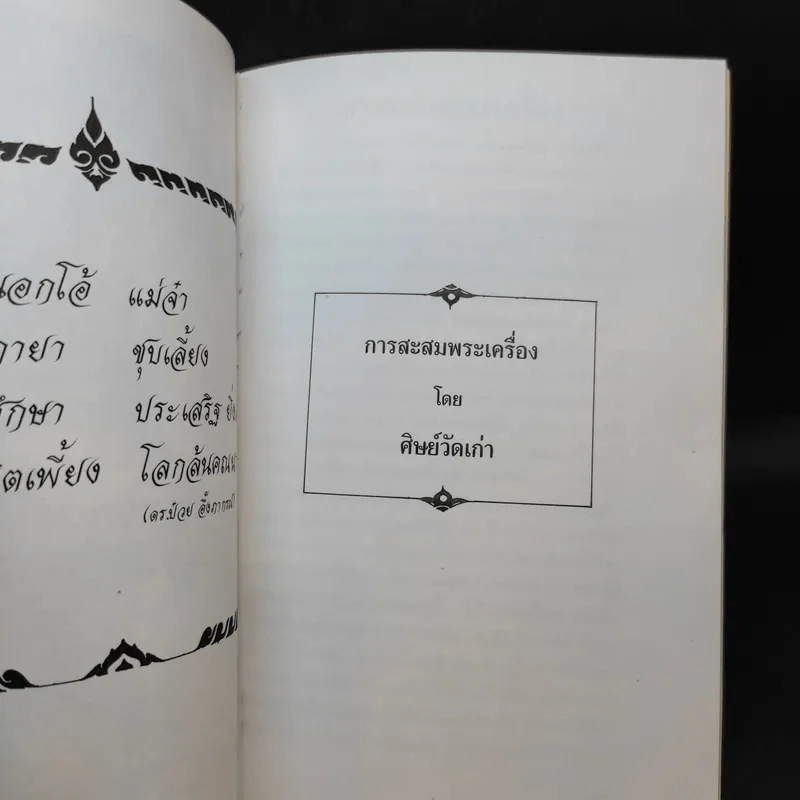 แม่จ๋า
กายา ชุบเลี้ยง
รักษา ประเสริฐ
โลกล้นคณนา
(ดร.ป๋วย อึ๊งภากรณ์)
การสะสมพระเครื่อง
โดย
ศิษย์วัดเก่า